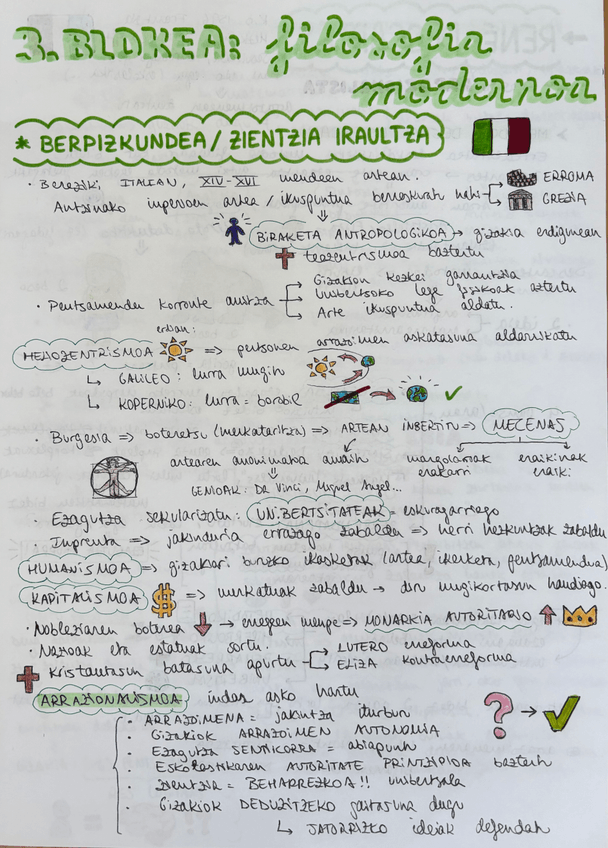 3. BLOKEA: filosofia
modernoa
* BERPIZKUNDEA / ZIENTZIA IRAULTZA
· Bereziki ITALIAN, XIV-XVI mendeen artean.
Antzinako inperioen artea / ikuspuntua berreskuratu nahi
ERROMA
GREZIA
BIRAKETA ANTROPOLOGIKOA → gizakia erdigunean
teozentrismoa baztertu
· Pentsamendu korronte anitza
Gizakion kezkei garrantzia
Unibertsoko lege fisikoak aztertu
Arte ikuspuntua aldatu.
HELIOZENTRISMOA erdian: => pertsonen arrazoimen askatasuna aldarrikatu
↳ GALILEO: lurra mugitu
↳ KOPERNIKO: lurra = borobil
· Burgesia => boteretsu (merkataritza) => ARTEAN INBERTITU => MECENAS
artearen
margolariak ekarri
eraikinak eraiki
GENIOAK: Da Vinci, Miguel Angel...
· Ezagutza sekularizatu: UNIBERTSITATEAK = eskuragarriago
· Inprenta => jakinduria errazago zabaldu => herri hezkuntzak zabaldu
HUMANISMOA => gizakiari buruzko ikasketak (artea, ikerketa, pentsamendua)
KAPITALISMOA $ => merkatuak zabaldu → diru mugikortasun handiago.
· Nobleziaren boterea ↓ → erregeen menpe => MONARKIA AUTORITARIO ↑
· Nazioak eta estatuak sortu.
Kristautasun batasuna apurtu
LUTERO erreforma
ELIZA kontraerreforma
ARRAZIONALISMOA indar asko hartu
? → ✓
· ARRAZOIMENA = jakintza iturburu
· Gizakiok ARRAZOIMEN AUTONOMIA
· Ezagutza SENTIKORRA = abiapuntu
· Eskolastikaren AUTORITATE PRINTZIPIOA baztertu
· Zientzia = BEHARREZKOA!! unibertsala
· Gizakiok DEDUZITZEKO gaitasuna dugu
↳ JATORRIZKO ideiak defendatu